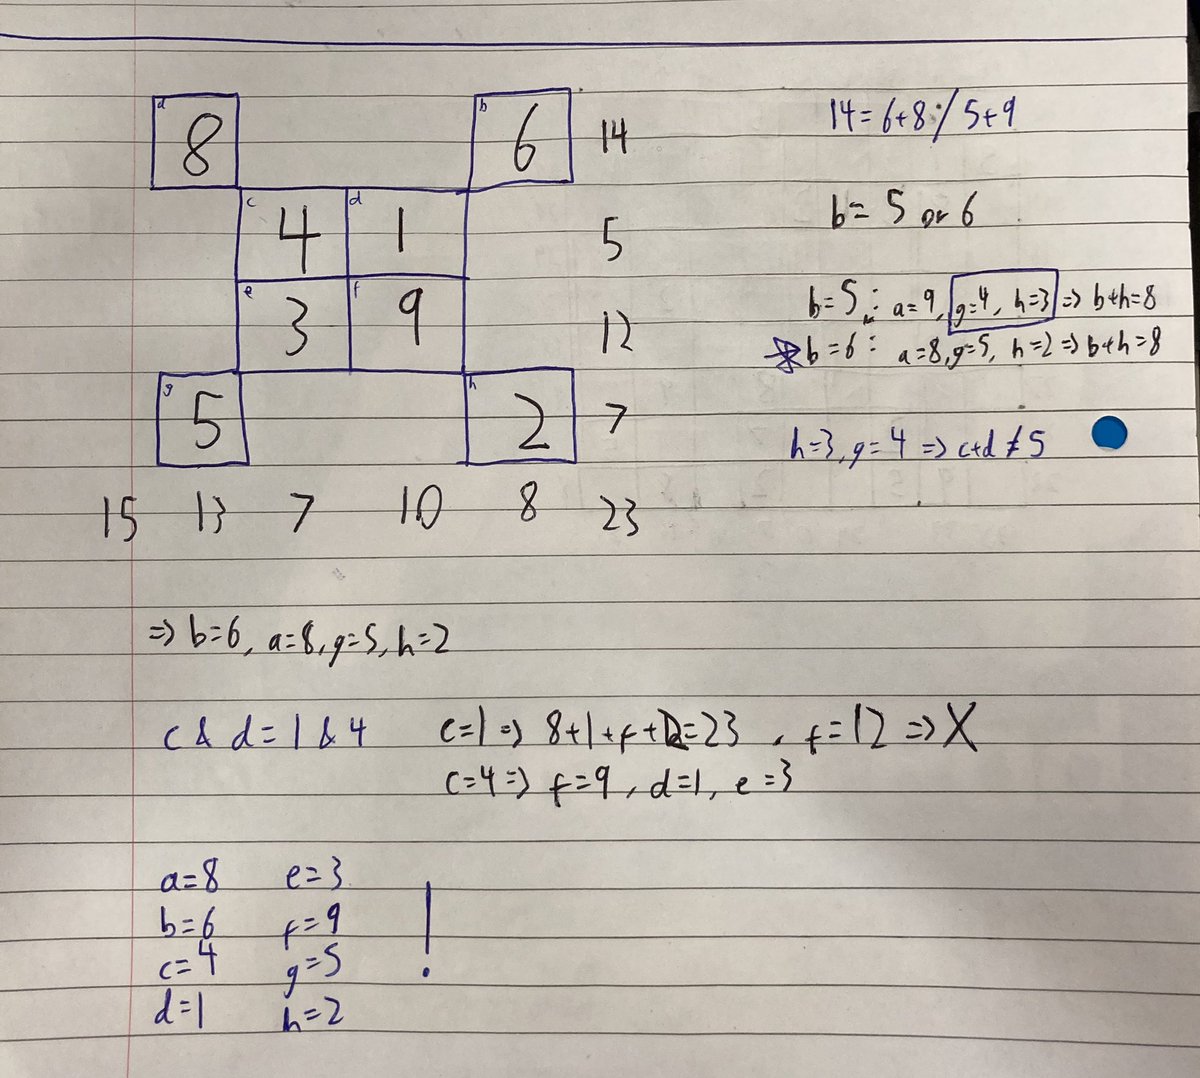 d b
8 6 14
14=6+8 / 5+9
c d
4 1 5
b= 5 or 6
e f
3 9 12
b=5: a=9, g=4, h=3 => b+h=8
b=6: a=8, g=5, h=2 => b+h=8
g h
5 2 7
h=3, g=4 => c+d≠5
15 13 7 10 8 23
=> b=6, a=8, g=5, h=2
c & d = 1 & 4 c=1 => 8+1+f+2=23, f=12 => X
c=4 => f=9, d=1, e=3
a=8 e=3
b=6 f=9
c=4 g=5
d=1 h=2
!